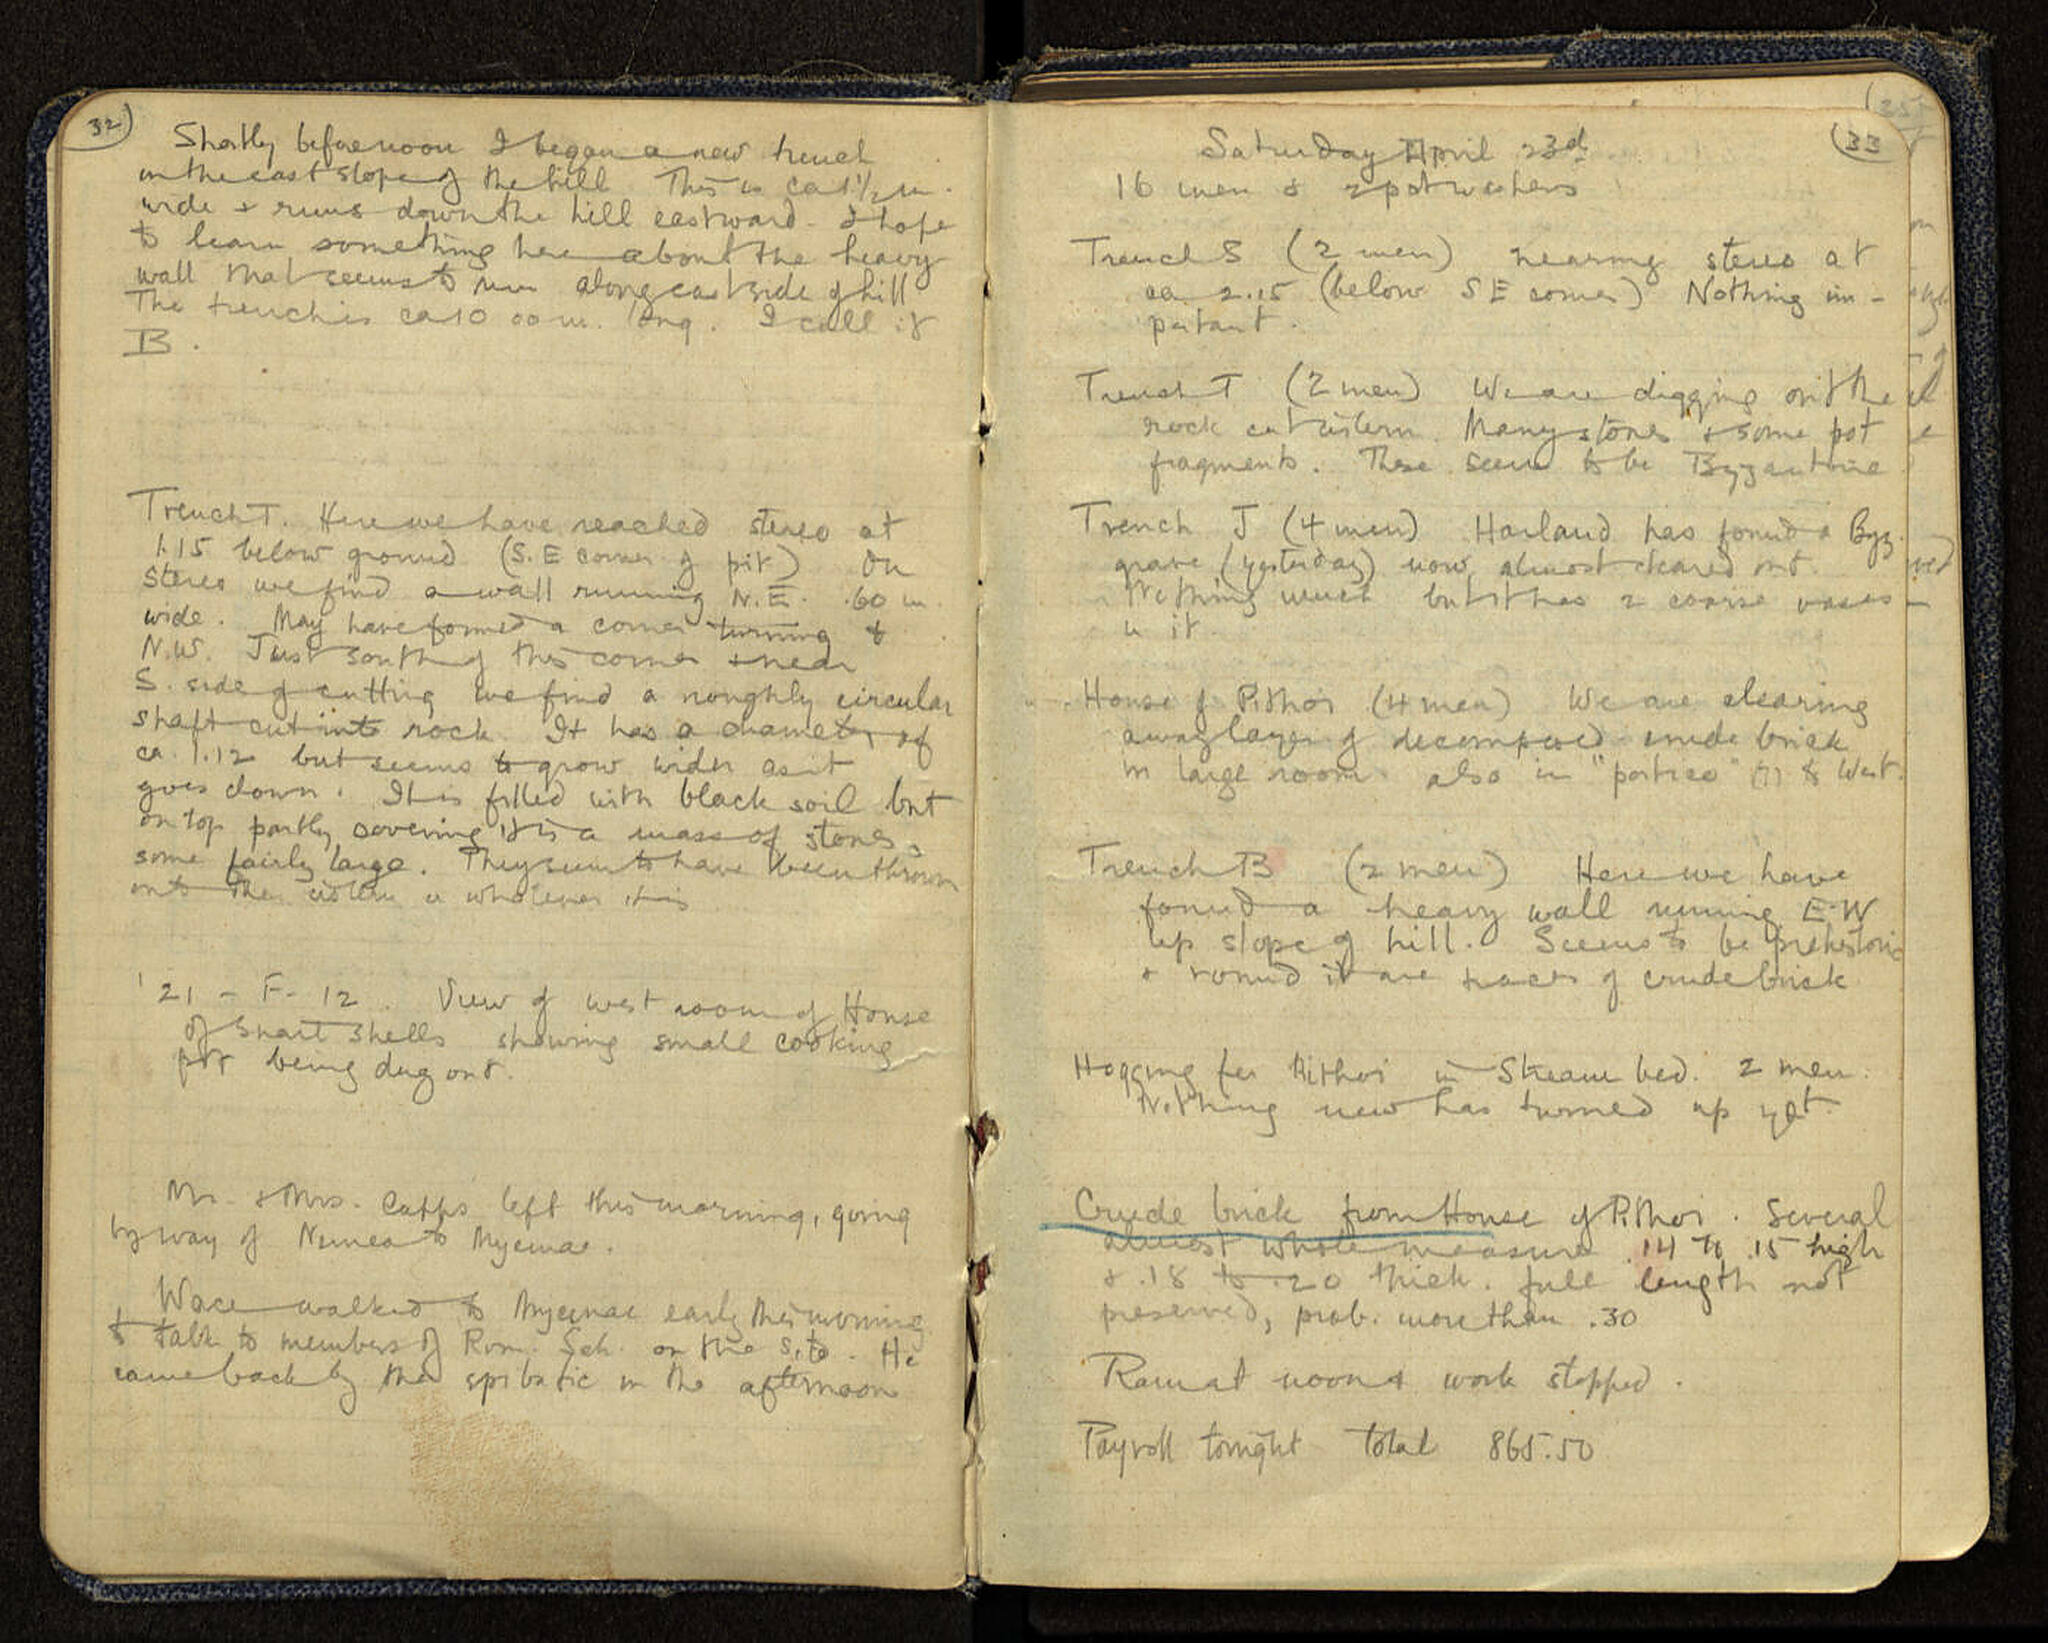 32
Shortly before noon I began a new trench
on the east slope of the hill This is ca 1 1/2 m.
wide & runs down the hill eastward. I hope
to learn something here about the heavy
wall that seems to run along east side of hill
The trench is ca 10 00 m. long. I call it
B.
Trench T. Here we have reached stereo at
1.15 below ground (S.E corner of pit) On
stereo we find a wall running N.E. .60 m
wide. May have formed a corner turning to
N.W. Just south of this corner & near
S. side of cutting we find a roughly circular
shaft cut into rock. It has a diameter of
ca. 1.12 but seems to grow wider as it
goes down. It is filled with black soil but
on top partly covering it is a mass of stones,
some fairly large. They seem to have been thrown
onto the cistern or whatever it is
'21 - F - 12. View of west room of House
of Snail Shells showing small cooking
pot being dug out.
Mr. & Mrs. Capps left this morning, going
by way of Nemea to Mycenae.
Wace walked to Mycenae early this morning
to talk to members of Rom. Sch. on the site. He
came back by the in the afternoon
(33
Saturday April 23d
16 men & 2 potwashers
Trench S (2 men) nearing stereo at
ca 2.15 (below S E corner) Nothing im-
portant.
Trench T (2 men) We are digging out the
rock cut cistern. Many stones & some pot
fragments. These seem to be Byzantine
Trench J (4 men) Harland has found a Byz.
grave (yesterday) now almost cleared out.
Nothing much but it has 2 coarse vases
in it.
House of Pithoi (4 men) We are clearing
away layer of decomposed crude brick
in large room. also in "portico" (?) to West.
Trench B (2 men) Here we have
found a heavy wall running E-W
up slope of hill. Seems to be prehistoric
& round it are traces of crude brick
Hogging for Pithoi in Stream bed. 2 men.
Nothing new has turned up yet.
Crude brick from House of Pithoi. Several
almost whole measure .14 to .15 high
& .18 to .20 thick. full length not
preserved, prob. more than .30
Rain at noon & work stopped.
Payroll tonight total 865.50